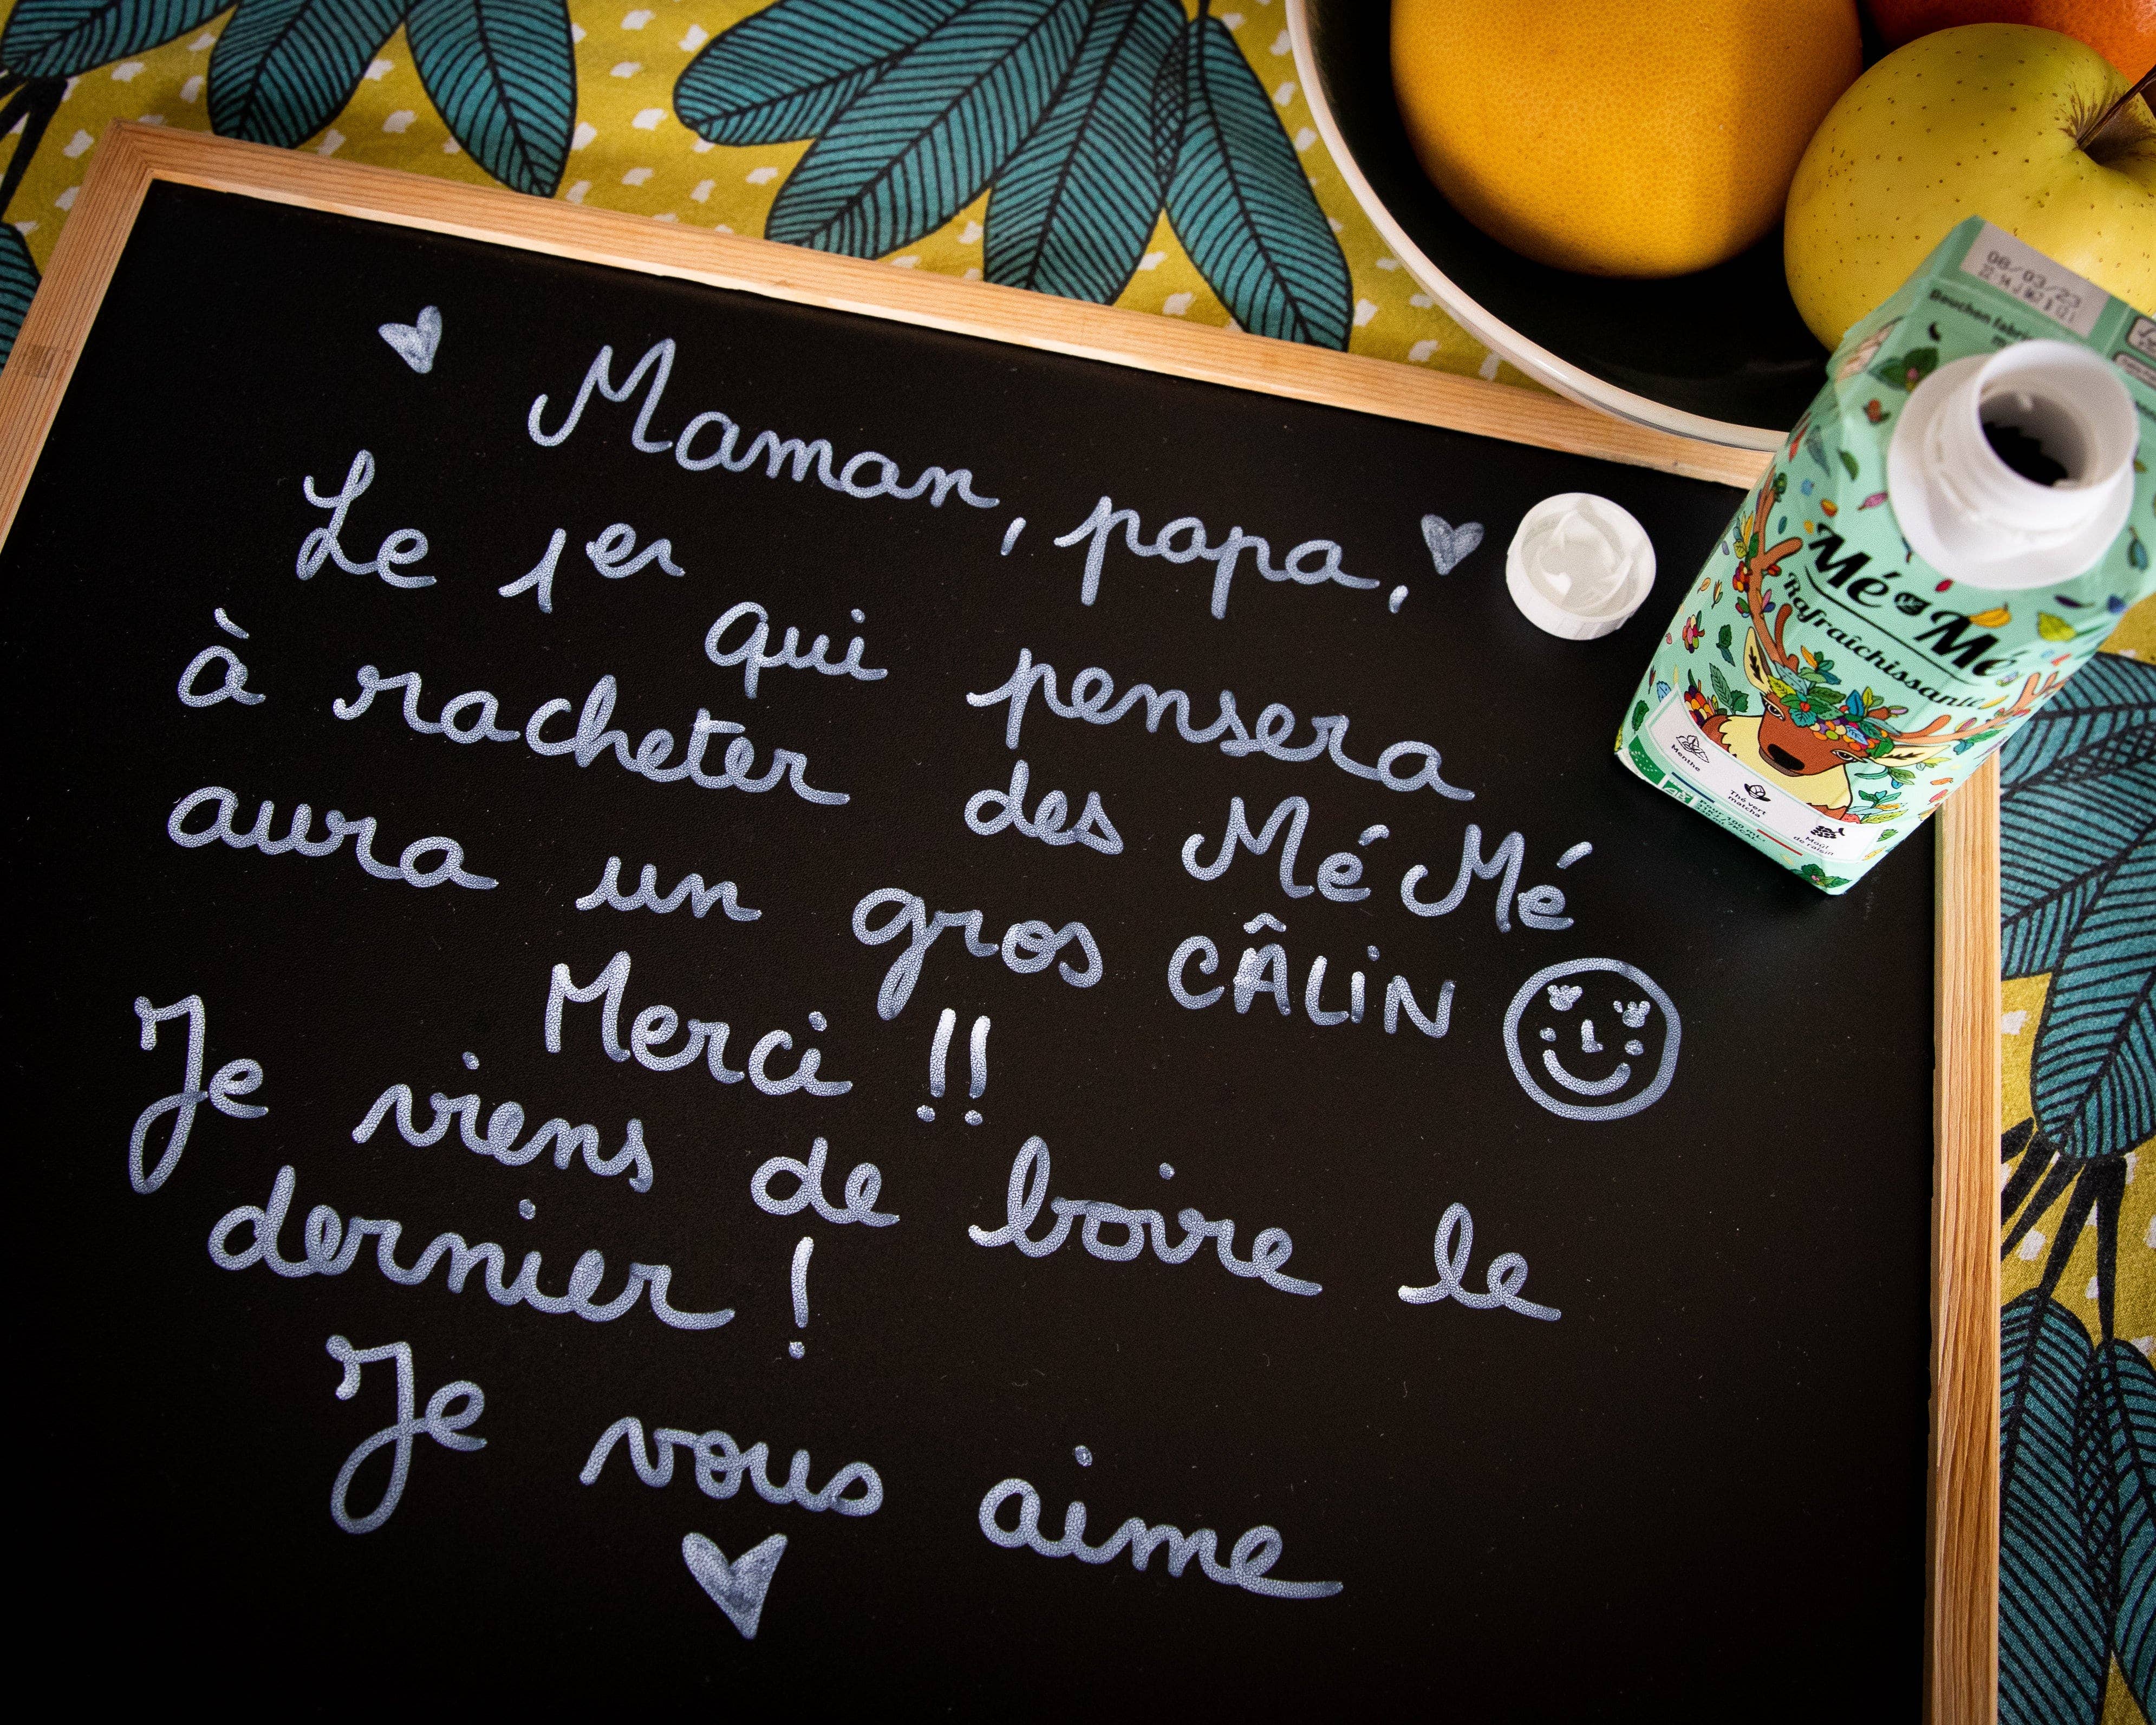 Maman, papa,
Le 1er qui pensera
à racheter des Mé Mé
aura un gros CÂLIN
Merci !!
Je viens de boire le
dernier !
Je vous aime
08/03/23
Bouchon
Mé Mé
Rafraîchissante
Menthe
Thé vert
matcha
Moût
de raisin